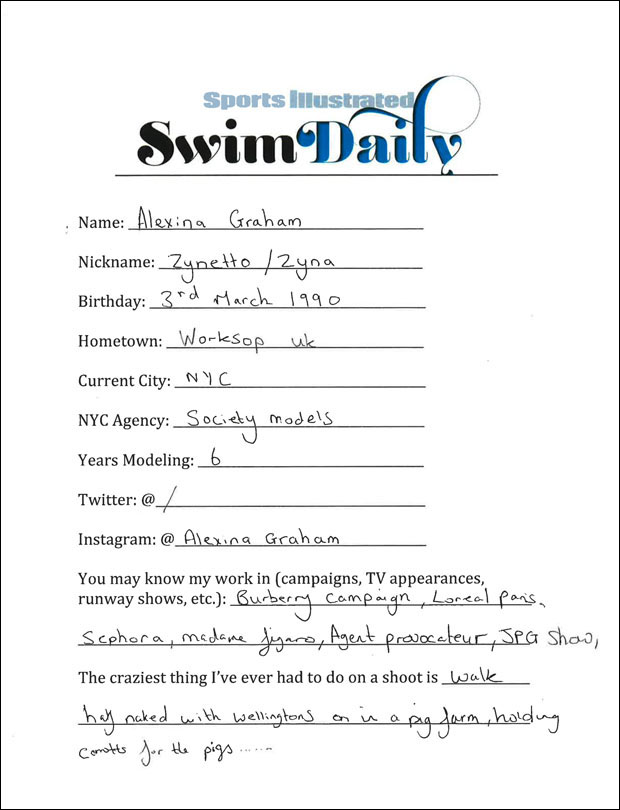 Sports Illustrated
Swim Daily
Name: Alexina Graham
Nickname: Zynetto / Zyna
Birthday: 3rd March 1990
Hometown: Worksop uk
Current City: NYC
NYC Agency: Society models
Years Modeling: 6
Twitter: @ /
Instagram: @ Alexina Graham
You may know my work in (campaigns, TV appearances,
runway shows, etc.): Burberry campaign, Loreal Paris,
Sephora, madame figaro, Agent provocateur, JPG Show,
The craziest thing I've ever had to do on a shoot is walk
half naked with wellingtons on in a pig farm, holding
carrotts for the pigs ......